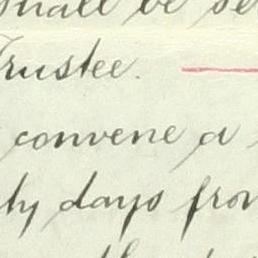 shall be se
Trustee.
convene a
ly days from